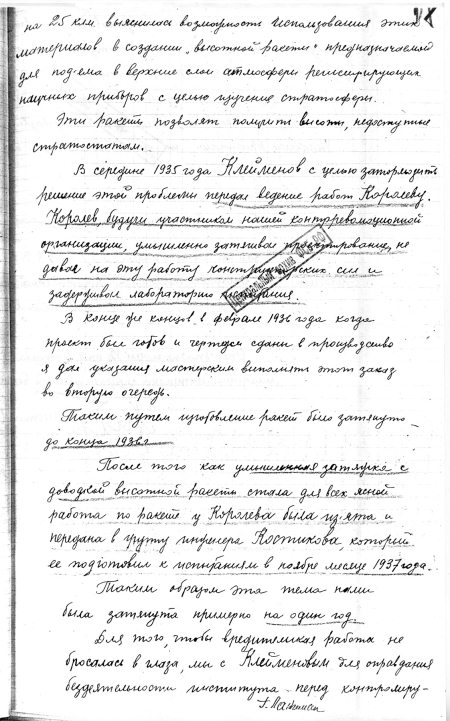 на 25 клм. выяснилась возможность использования этих
материалов в создании "высотной ракеты" предназначаемой
для под-ема в верхние слои атмосферы регистрирующих
научных приборов с целью изучение стратосферы.
Эти ракеты позволят получить высоты, недоступные
стратостатам.
В середине 1935 года Клейменов с целью затормозить
решение этой проблемы передал ведение работ Королеву.
Королев, будучи участником нашей контрреволюционной
организации, умышленно затягивал проектирование, не
давал на эту работу конструкторских сил и
задерживал лабораторию
В конце же концов в феврале 1936 года когда
проект был готов и чертежи сданы в производство
я дал указания мастерским выполнять этот заказ
во вторую очередь.
Таким путем изготовление ракет было затянуто
до конца 1936г
После того как умышленная затяжка с
доводкой высотной ракеты стала для всех ясной
работа по ракете у Королева была из'ята и
передана в группу инженера Костикова, который
ее подготовил к испытаниям в ноябре месяце 1937 года.
Таким образом эта тема нами
была затянута примерно на один год.
Для того, чтобы вредительская работа не
бросалась в глаза, мы с Клейменовым для оправдания
бездеятельности института перед контролиру-
Г. Лангемак